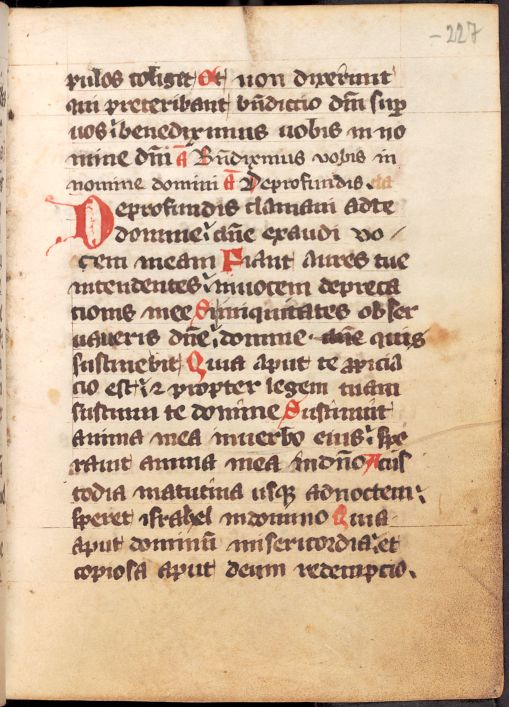 -227
pulos colliget Et non dixerunt
qui preteribant bn̄dictio dn̄i sup
vos: benedixmus uobis in no
mine dn̄i a Bn̄diximus vobis in
nomine domini a Deprofundis.
Deprofundis clamaui adte
domine: dn̄e exaudi vo /
cem meam Fiant aures tue
intendentes: inuocem depreca
tionis mee Si iniquitates obser
uaueris dn̄e: domine dn̄e quis
sustinebit Quia aput te ꝓpicia
cio est: ⁊ propter legem tuam
sustinui te domine Sustinuit
anima mea inuerbo eius: spe
rauit anima mea indn̄o Acus
todia matutina usqꝫ adnoctem:
speret israhel indomino Quia
aput dominū misericordia: et
copiosa aput deum redempcio.